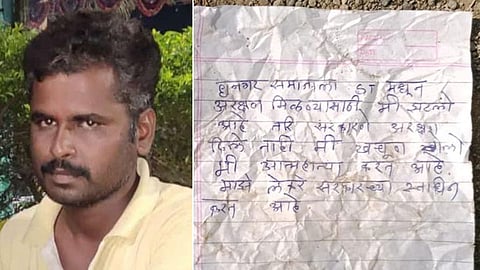 धनगर समाजाला ST मधून
आरक्षण मिळण्यासाठी मी झटलो
आहे तरि सरकारने आरक्षण
दिले नाही मी खचून गेलो
मी आत्महत्या करत आहे.
माझे लेकर सरकारच्या स्वाधिन
करत आहे.